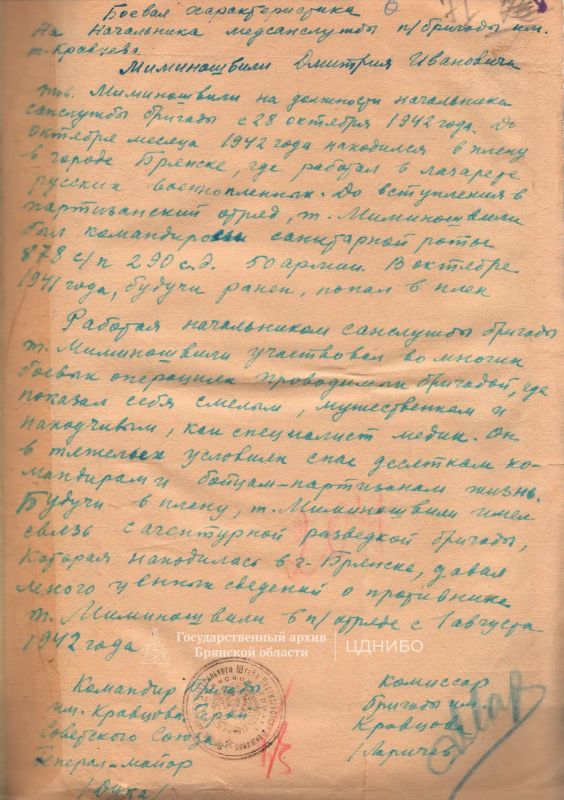 Боевая характеристика
На Начальника медсанслужбы п/бригады им.
т. Кравцова
Миминошвили Дмитрия Ивановича
Тов. Миминошвили на должности начальника
санслужбы бригады с 28 октября 1942 года. До
октября месяца 1942 года находился в плену
в городе Брянске, где работал в лазарете
русских военнопленных. До вступления в
партизанский отряд, т. Миминошвили
был командиром санитарной роты
878 с/п 290 с.д. 50 армии. В октябре
1941 года, будучи ранен, попал в плен
Работая начальником санслужбы бригады
т. Миминошвили участвовал во многих
боевых операциях проводимых бригадой, где
показал себя смелым, мужественным и
находчивым, как специалист медик. Он
в тяжелых условиях спас десяткам ко-
мандирам и бойцам-партизанам жизнь.
Будучи в плену, т. Миминошвили имел
связь с агентурной разведкой бригады,
которая находилась в г. Брянске, давал
много ценных сведений о противнике
т. Миминошвили в п/отряде с 1 августа
1942 года
Государственный архив
Брянской области
ЦДНИБО
Командир бригады
им. Кравцова Герой
Советского Союза
Генерал-майор
/Дука/
Комиссар
бригады им.
Кравцова
/Ларичев/